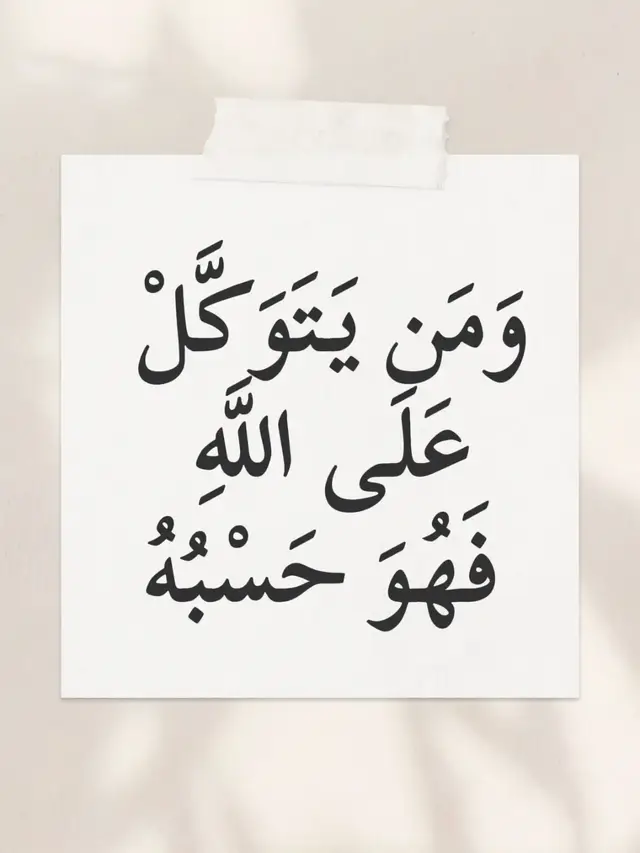 وَمَن يَتَوَكَّلْ
عَلَى اللَّهِ
فَهُوَ حَسْبُهُ